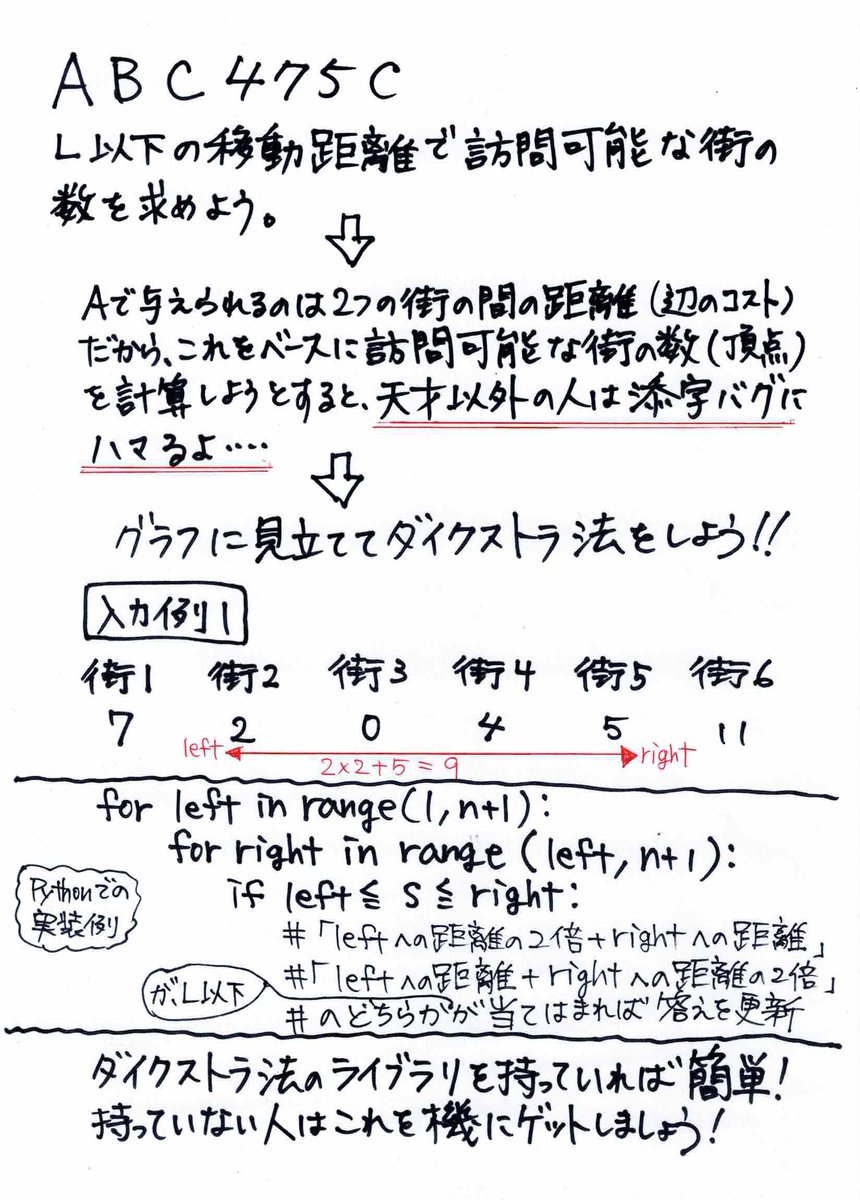 ABC475C
L以下の移動距離で訪問可能な街の
数を求めよう。
Aで与えられるのは2つの街の間の距離(辺のコスト)
だから、これをベースに訪問可能な街の数(頂点)
を計算しようとすると、天才以外の人は添字バグに
ハマるよ‥‥
グラフに見立ててダイクストラ法をしよう!!
入力例1
街1 街2 街3 街4 街5 街6
7 2 0 4 5 11
left right
2×2+5=9
for left in range(1,n+1):
for right in range(left,n+1):
if left≦S≦right:
Pythonでの
実装例
#「leftへの距離の2倍+rightへの距離」
#「leftへの距離+rightへの距離の2倍」
が、L以下
#のどちらかが当てはまれば答えを更新
ダイクストラ法のライブラリを持っていれば簡単!
持っていない人はこれを機にゲットしましょう!